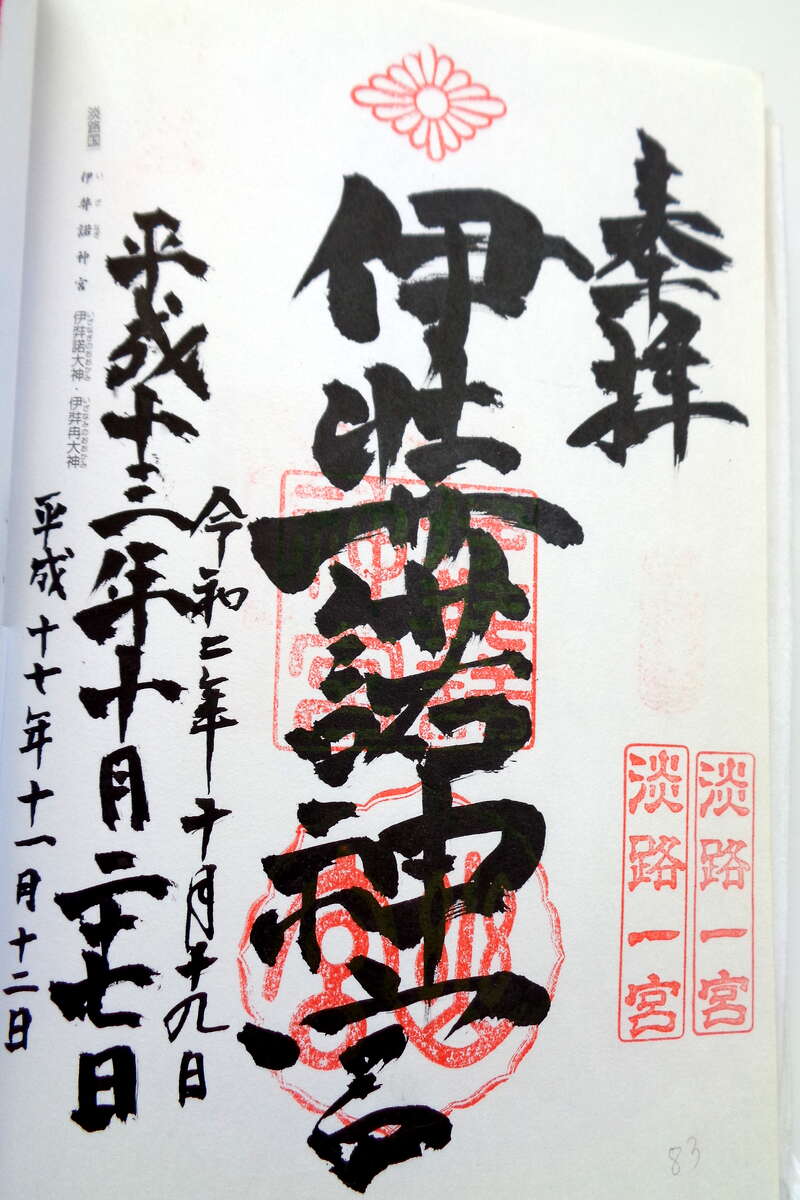 奉拝
淡路一宮
淡路一宮
伊弉諾神宮
令和二年十月十九日
平成十三年十月二十七日
平成十七年十一月十二日
淡路国 伊弉諾神宮 伊弉諾大神・伊弉冉大神
83